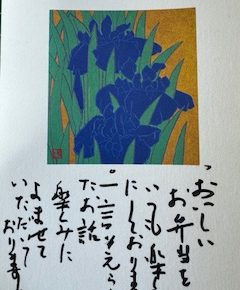 おいしい
お弁当を
いつも楽し
にしておりま
。一言そえら
たお話
楽しみに
よませて
いただいて
おります